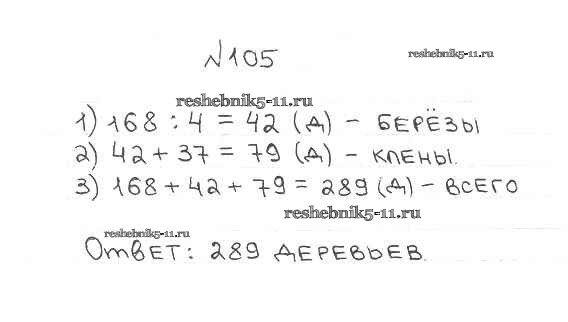 №105
reshebnik5-11.ru
reshebnik5-11.ru
1) 168 : 4 = 42 (д) - БЕРЁЗЫ
2) 42 + 37 = 79 (д) - КЛЕНЫ.
3) 168 + 42 + 79 = 289 (д) - ВСЕГО
reshebnik5-11.ru
reshebnik5-11.ru
Ответ: 289 ДЕРЕВЬЕВ.